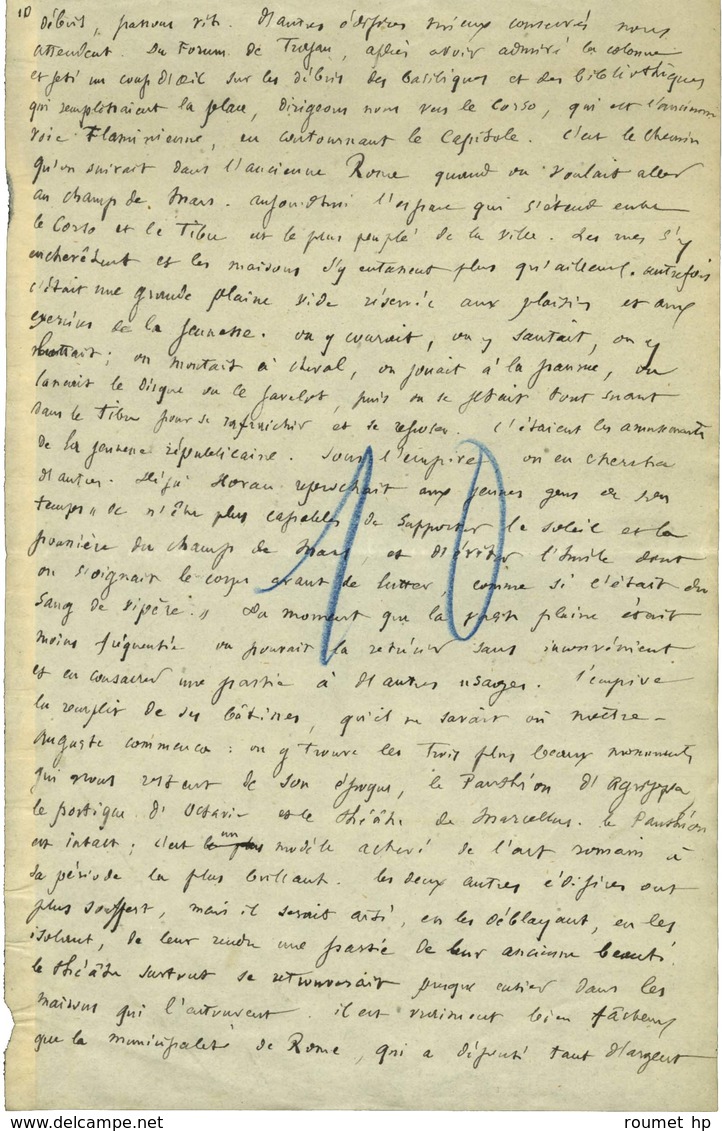 10
débris, passons vite. D'autres édifices mieux conservés nous
attendent. Du Forum de Trajan, après avoir admiré la colonne
et jeté un coup d'œil sur les débris des basiliques et des bibliothèques
qui remplissaient la place, dirigeons nous vers le Corso, qui est l'ancienne
voie Flaminienne, en contournant le Capitole. C'est le chemin
qu'on suivait dans l'ancienne Rome quand on voulait aller
au champ de Mars. Aujourd'hui l'espace qui s'étend entre
le Corso et le Tibre est le plus peuplé de la ville. Les rues s'y
enchevêtrent et les maisons s'y entassent plus qu'ailleurs. autrefois
c'était une grande plaine vide réservée aux plaisirs et aux
exercices de la jeunesse. on y courait, on y sautait, on y
luttait ; on montait à cheval, on jouait à la paume, on
lançait le disque ou le javelot, puis on se jetait tout suant
dans le Tibre pour se rafraichir et se reposer. C'étaient les amusements
de la jeunesse républicaine. Sous l'empire on en chercha
d'autres. Déjà Horace reprochait aux jeunes gens de son
temps " de n'être plus capables de supporter le soleil et la
poussière du champ de Mars, et d'éviter l'huile dont
on s'oignait le corps avant de lutter, comme si c'était du
sang de vipère. " Du moment que la vaste plaine était
moins fréquentée on pouvait la rétrécir sans inconvénient
et en consacrer une partie à d'autres usages. l'empire
la remplit de ses bâtisses, qu'il ne savait où mettre.
Auguste commença : on y trouve les trois plus beaux monuments
qui nous restent de son époque, le Panthéon d'Agrippa,
le portique d'Octavie et le théâtre de Marcellus. le Panthéon
est intact ; c'est un modèle achevé de l'art romain à
sa période la plus brillante. les deux autres édifices ont
plus souffert, mais il serait aisé, en les déblayant, en les
isolant, de leur rendre une partie de leur ancienne beauté.
le théâtre surtout se retrouverait presque entier dans les
maisons qui l'entourent. il est vraiment bien fâcheux
que la municipalité de Rome, qui a dépensé tant d'argent
10
roumet hp